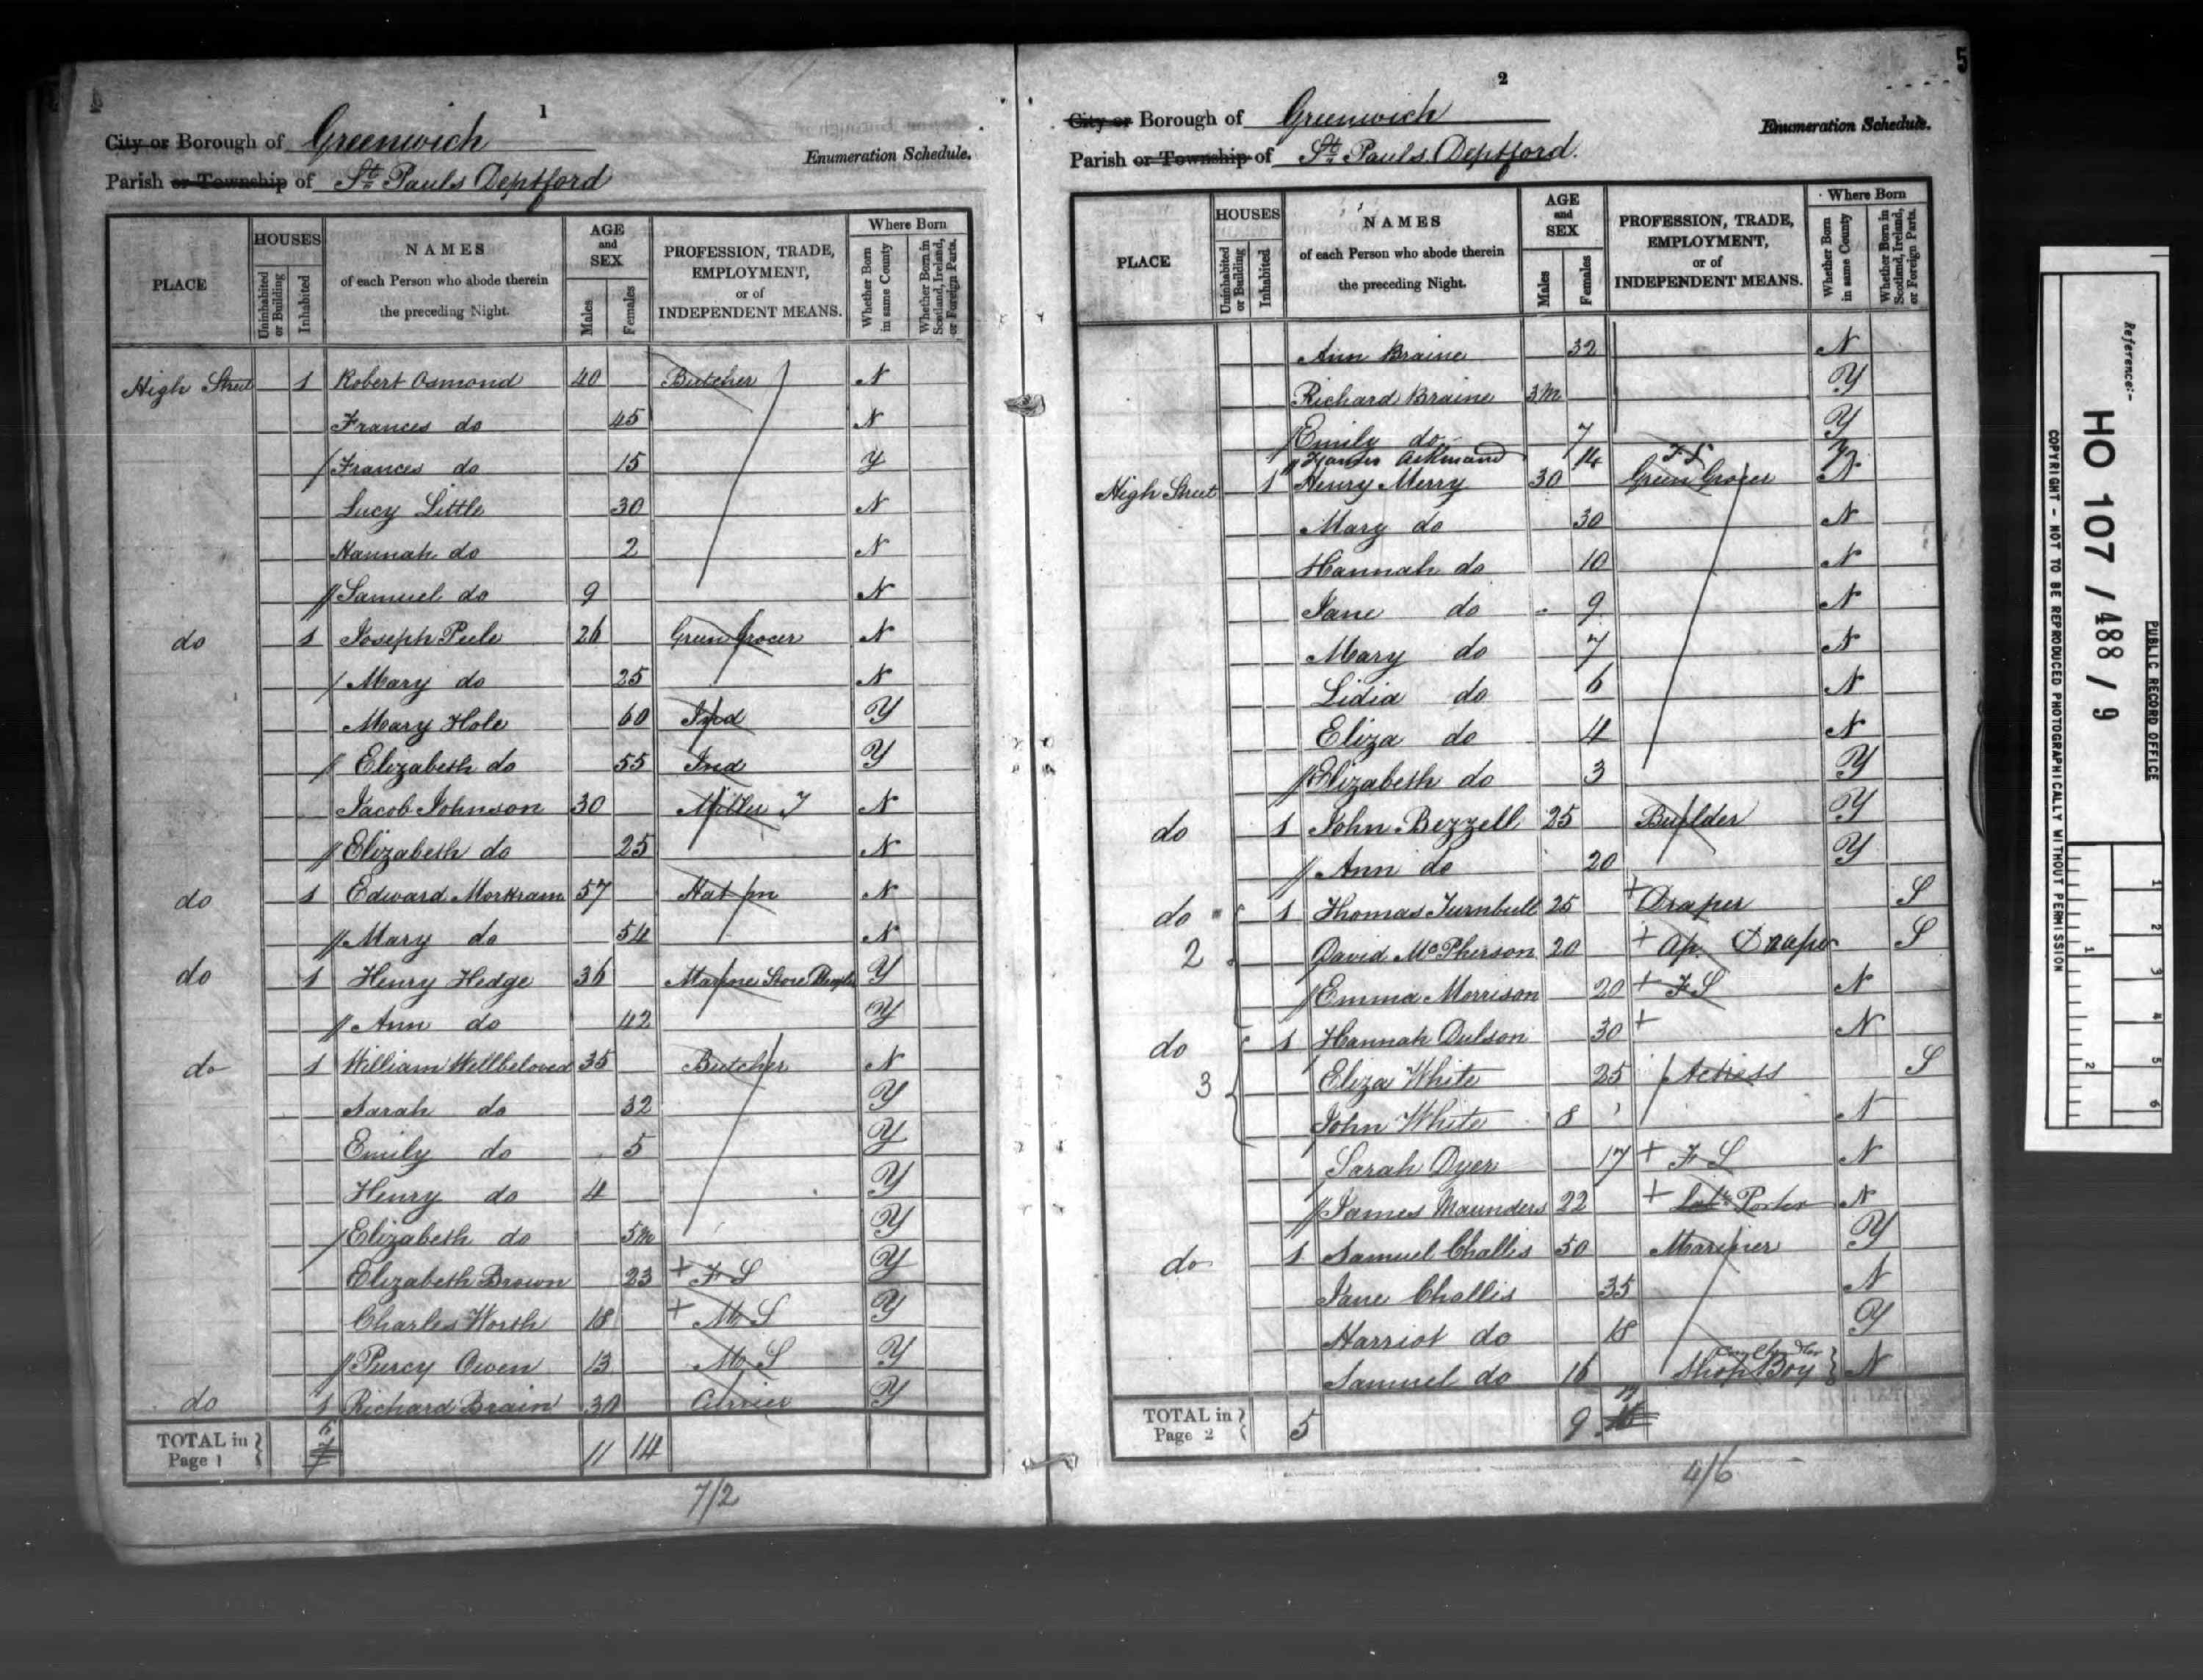 1
City or Borough of Greenwich
Enumeration Schedule.
Parish or Township of St Pauls Deptford
PLACE
HOUSES
Uninhabited or Building
Inhabited
NAMES
of each Person who abode therein
the preceding Night.
AGE
and
SEX
Males
Females
PROFESSION, TRADE,
EMPLOYMENT,
or of
INDEPENDENT MEANS.
Where Born
Whether Born in same County
Whether Born in Scotland, Ireland, or Foreign Parts.
High Street 1 Robert Osmond 40 Butcher N
Frances do 45 N
Frances do 15 Y
Lucy Little 30 N
Hannah do 2 N
Samuel do 9 N
do 1 Joseph Peele 26 Green Grocer N
Mary do 25 N
Mary Hole 60 Ind Y
Elizabeth do 55 Ind Y
Jacob Johnson 30 Miller J N
Elizabeth do 25 N
do 1 Edward Morkram 57 Hat m N
Mary do 54 N
do 1 Henry Hedge 36 Marine Store Y
Ann do 42 Y
do 1 William Wellbeloved 35 Butcher N
Sarah do 32 Y
Emily do 5 Y
Henry do 4 Y
Elizabeth do 5m Y
Elizabeth Brown 23 + F S Y
Charles Worth 18 + M S Y
Percy Owen 13 M S Y
do 1 Richard Brain 30 Currier Y
TOTAL in Page 1 6 11 14
7/2
2
5
City or Borough of Greenwich
Enumeration Schedule.
Parish or Township of St Pauls Deptford.
PLACE
HOUSES
Uninhabited or Building
Inhabited
NAMES
of each Person who abode therein
the preceding Night.
AGE
and
SEX
Males
Females
PROFESSION, TRADE,
EMPLOYMENT,
or of
INDEPENDENT MEANS.
Where Born
Whether Born in same County
Whether Born in Scotland, Ireland, or Foreign Parts.
Ann Braine 32 N
Richard Braine 3m Y
Emily do 7 Y
14 F S
High Street 1 Henry Merry 30 Green Grocer N
Mary do 30 N
Hannah do 10 N
Jane do 9 N
Mary do 7 N
Lidia do 6 N
Eliza do 4 N
Elizabeth do 3 Y
do 1 John Bezzell 25 Builder Y
Ann do 20 Y
do 1 Thomas Turnbull 25 + Draper S
2 David McPherson 20 + Ap. Draper S
Emma Morrison 20 + F S N
do 1 Hannah Dulson 30 + N
3 Eliza White 25 Actress S
John White 8 N
Sarah Dyer 17 + F S N
James Maunders 22 + Porter N
do 1 Samuel Challis 50 Mariner Y
Jane Challis 35 N
Harriot do 18 Y
Samuel do 16 Shop Boy N
TOTAL in Page 2 5 9
4/6
Reference:-
HO 107 / 488 / 9
PUBLIC RECORD OFFICE
COPYRIGHT - NOT TO BE REPRODUCED PHOTOGRAPHICALLY WITHOUT PERMISSION
1 2 3 4 5 6
1 2